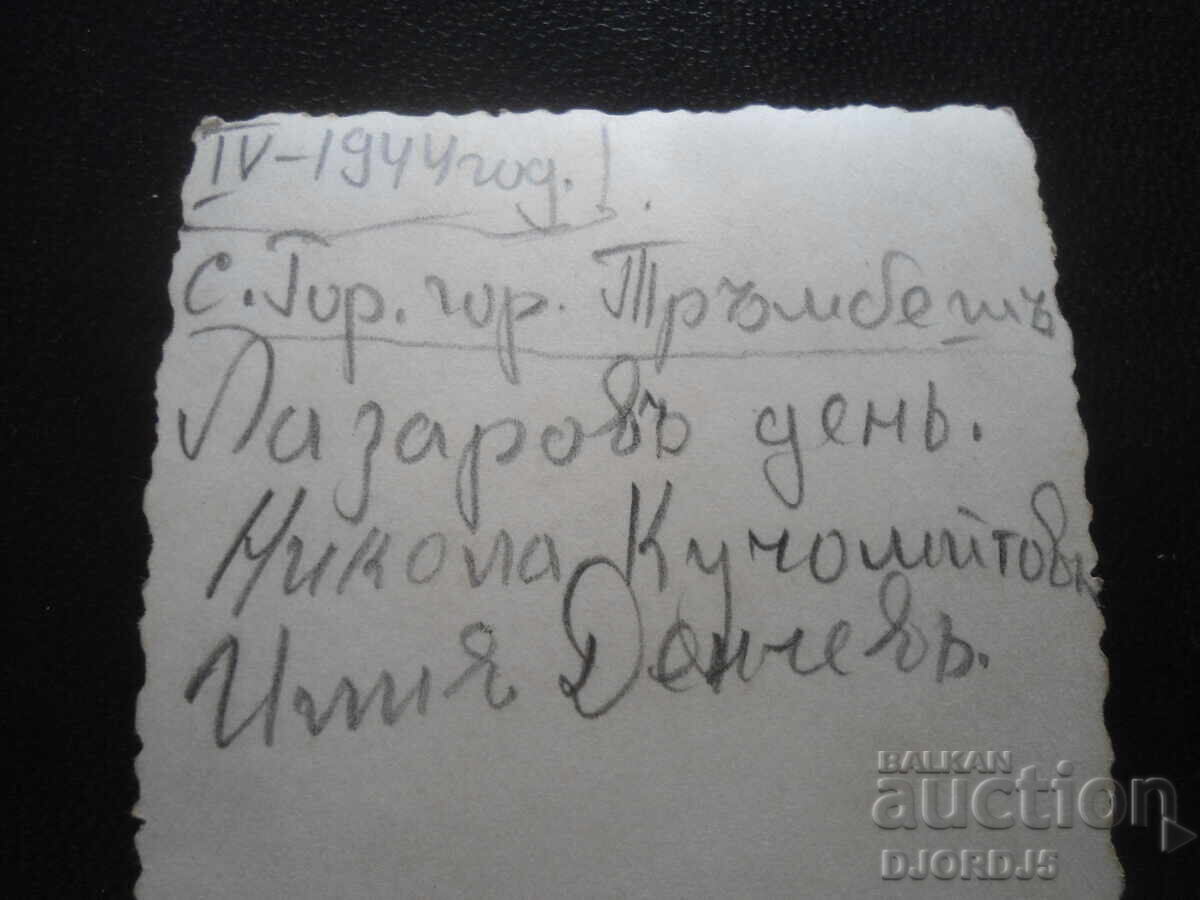 IV-1944 год.!
с. Гор. гор. Тръмбешъ
Лазаровъ день.
Никола Кучомитовъ
Илия Денчевъ.
BALKAN
auction
DJORDJ5